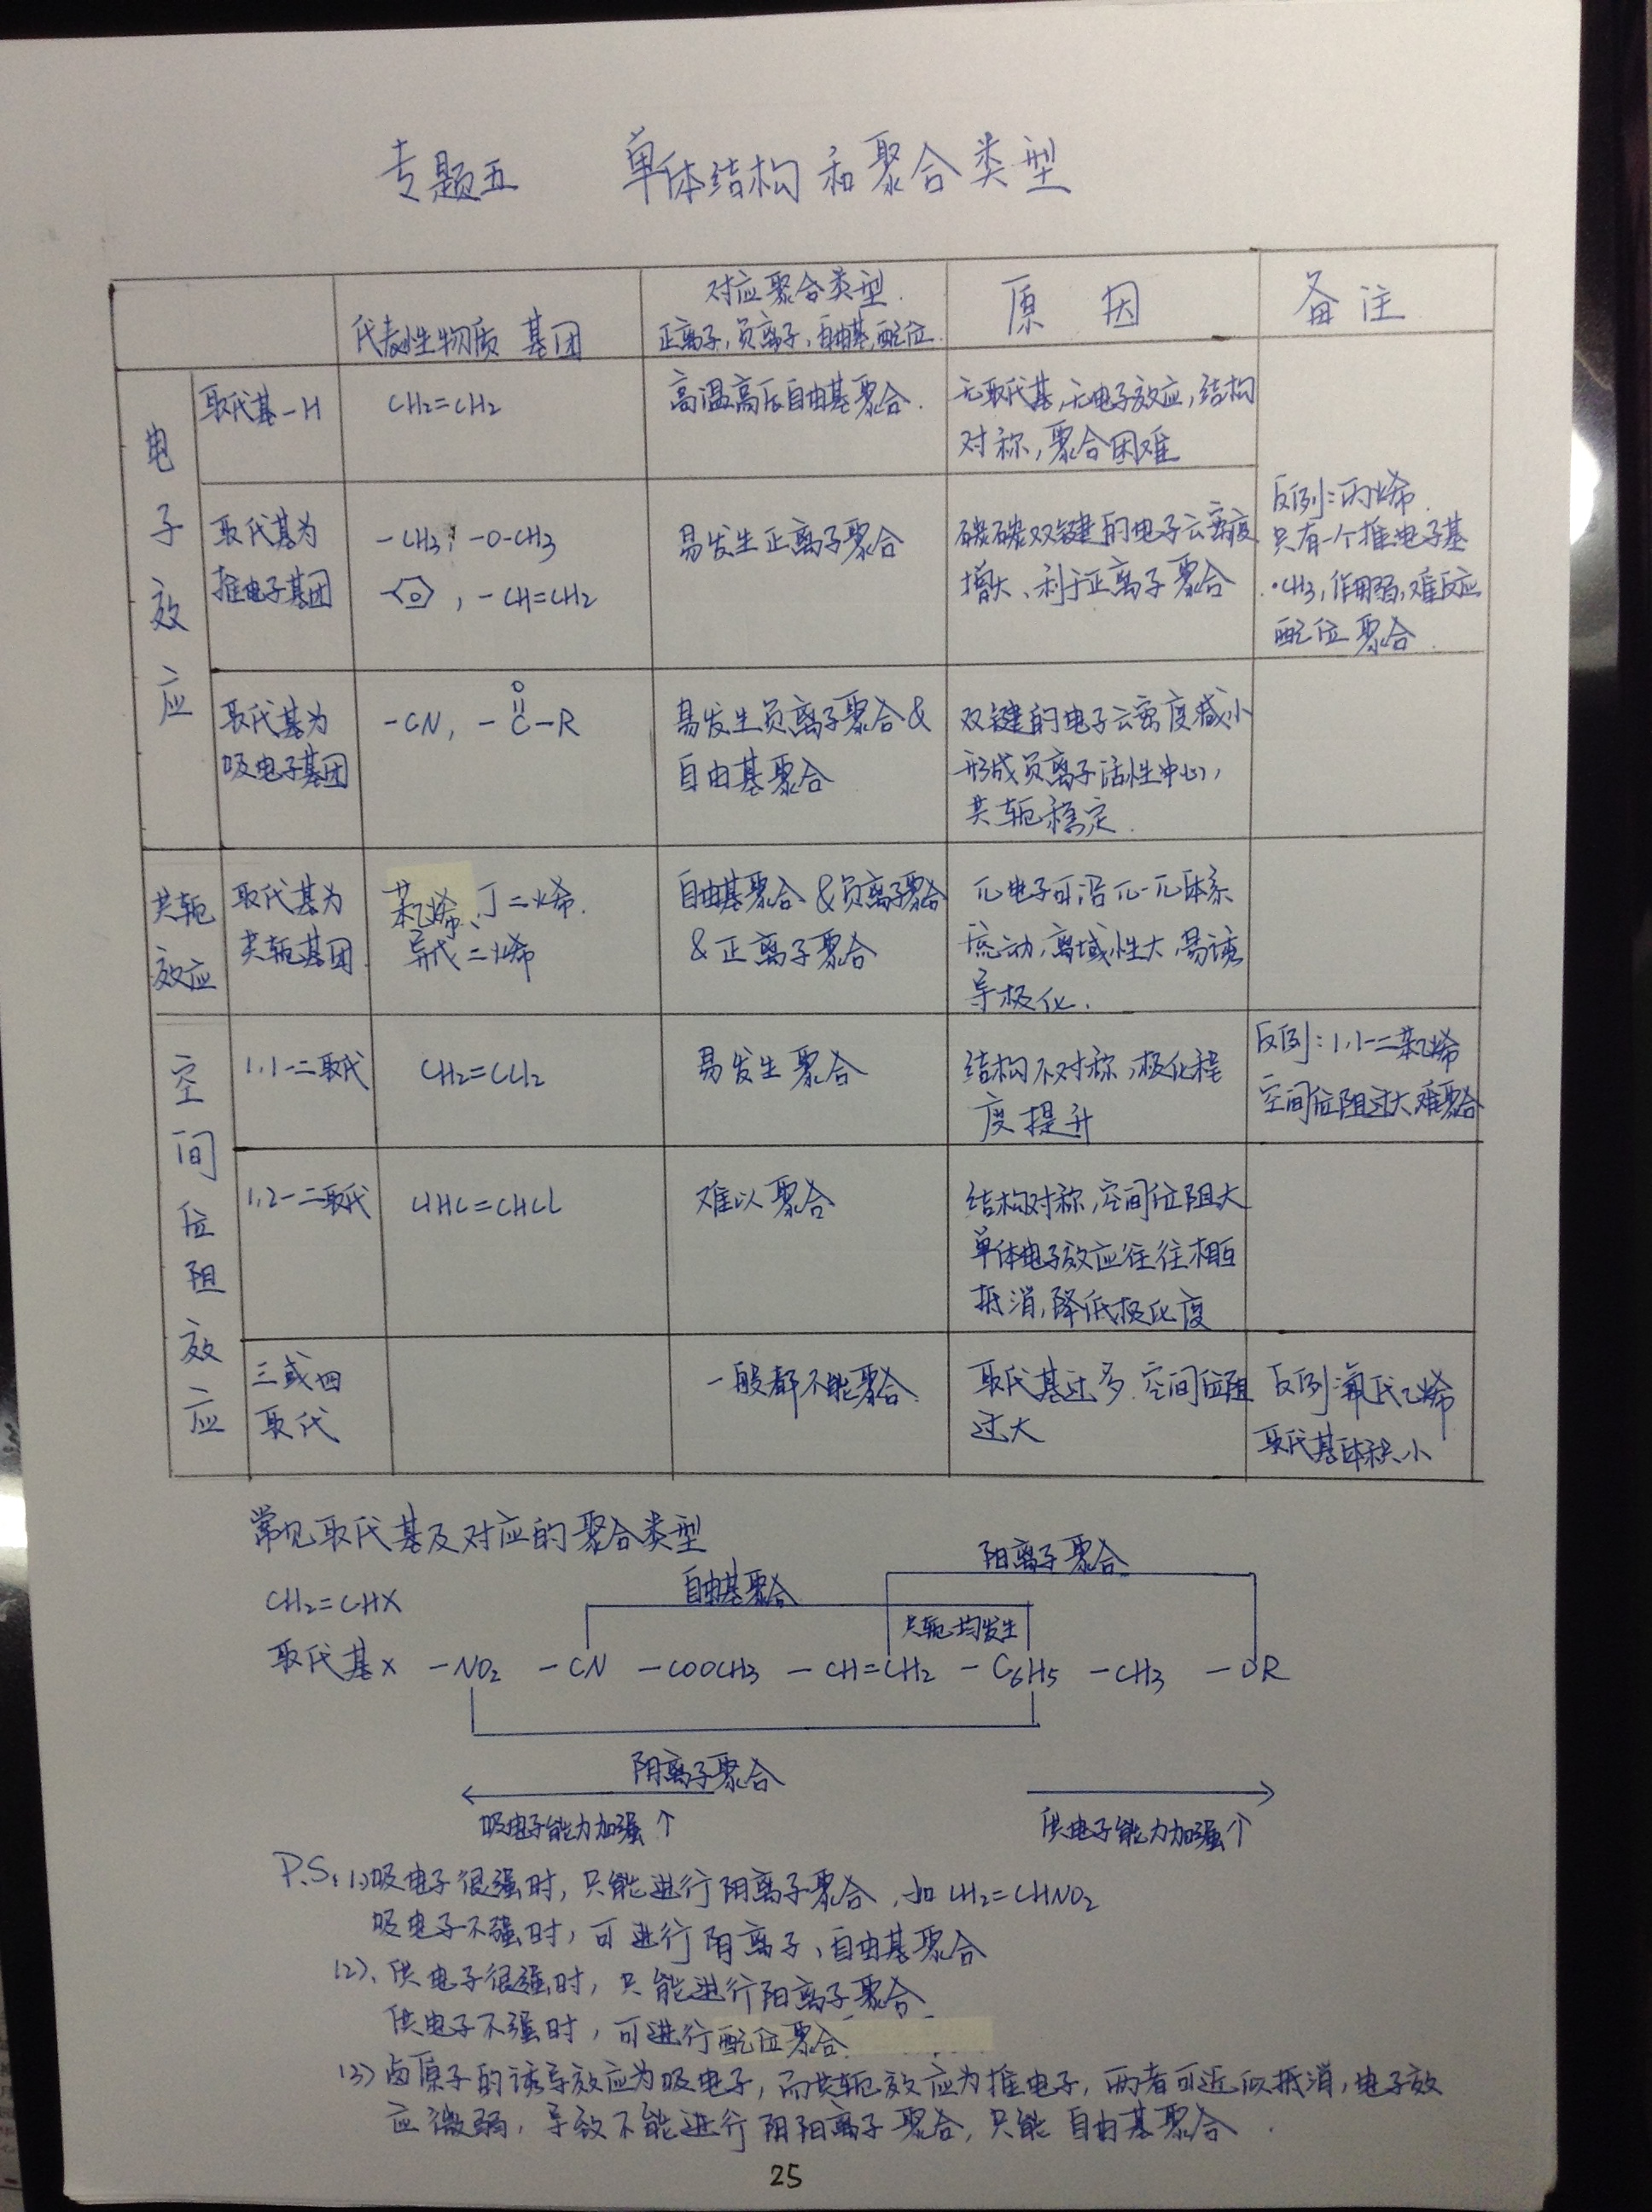 专题五 单体结构和聚合类型
代表性物质 基团
对应聚合类型.
正离子,负离子,自由基,配位.
原因
备注
电子效应
取代基-H
CH₂=CH₂
高温高压自由基聚合.
无取代基,无电子效应,结构
对称,聚合困难
取代基为
推电子基团
-CH₃, -O-CH₃
, -CH=CH₂
易发生正离子聚合
碳碳双键的电子云密度
增大、利于正离子聚合
反例:丙烯.
只有一个推电子基
·CH₃,作用弱,难反应
配位聚合.
取代基为
吸电子基团
-CN, -C-R
O
易发生负离子聚合&
自由基聚合
双键的电子云密度减小
形成负离子活性中心,
共轭稳定.
共轭
效应
取代基为
共轭基团
苯乙烯、丁二烯.
异戊二烯
自由基聚合&负离子聚合
&正离子聚合
π电子可沿π-π体系
流动,离域性大,易诱
导极化.
空间位阻效应
1,1-二取代
CH₂=CCl₂
易发生聚合
结构不对称,极化程
度提升
反例:1,1-二苯乙烯
空间位阻过大难聚合
1,2-二取代
ClHC=CHCl
难以聚合
结构对称,空间位阻大
单体电子效应往往相互
抵消,降低极化度
三或四
取代
一般都不能聚合.
取代基过多.空间位阻
过大
反例:氟代乙烯
取代基体积小
常见取代基及对应的聚合类型
阳离子聚合
自由基聚合
CH₂=CHX
共轭均发生
取代基X -NO₂ -CN -COOCH₃ -CH=CH₂ -C₆H₅ -CH₃ -OR
阴离子聚合
吸电子能力加强↑
供电子能力加强↑
P.S: (1)吸电子很强时,只能进行阴离子聚合,如CH₂=CHNO₂
吸电子不强时,可进行阴离子、自由基聚合
(2)、供电子很强时,只能进行阳离子聚合
供电子不强时,可进行配位聚合
(3) 卤原子的诱导效应为吸电子,而共轭效应为推电子,两者可近似抵消,电子效
应微弱,导致不能进行阴阳离子聚合,只能自由基聚合.
25